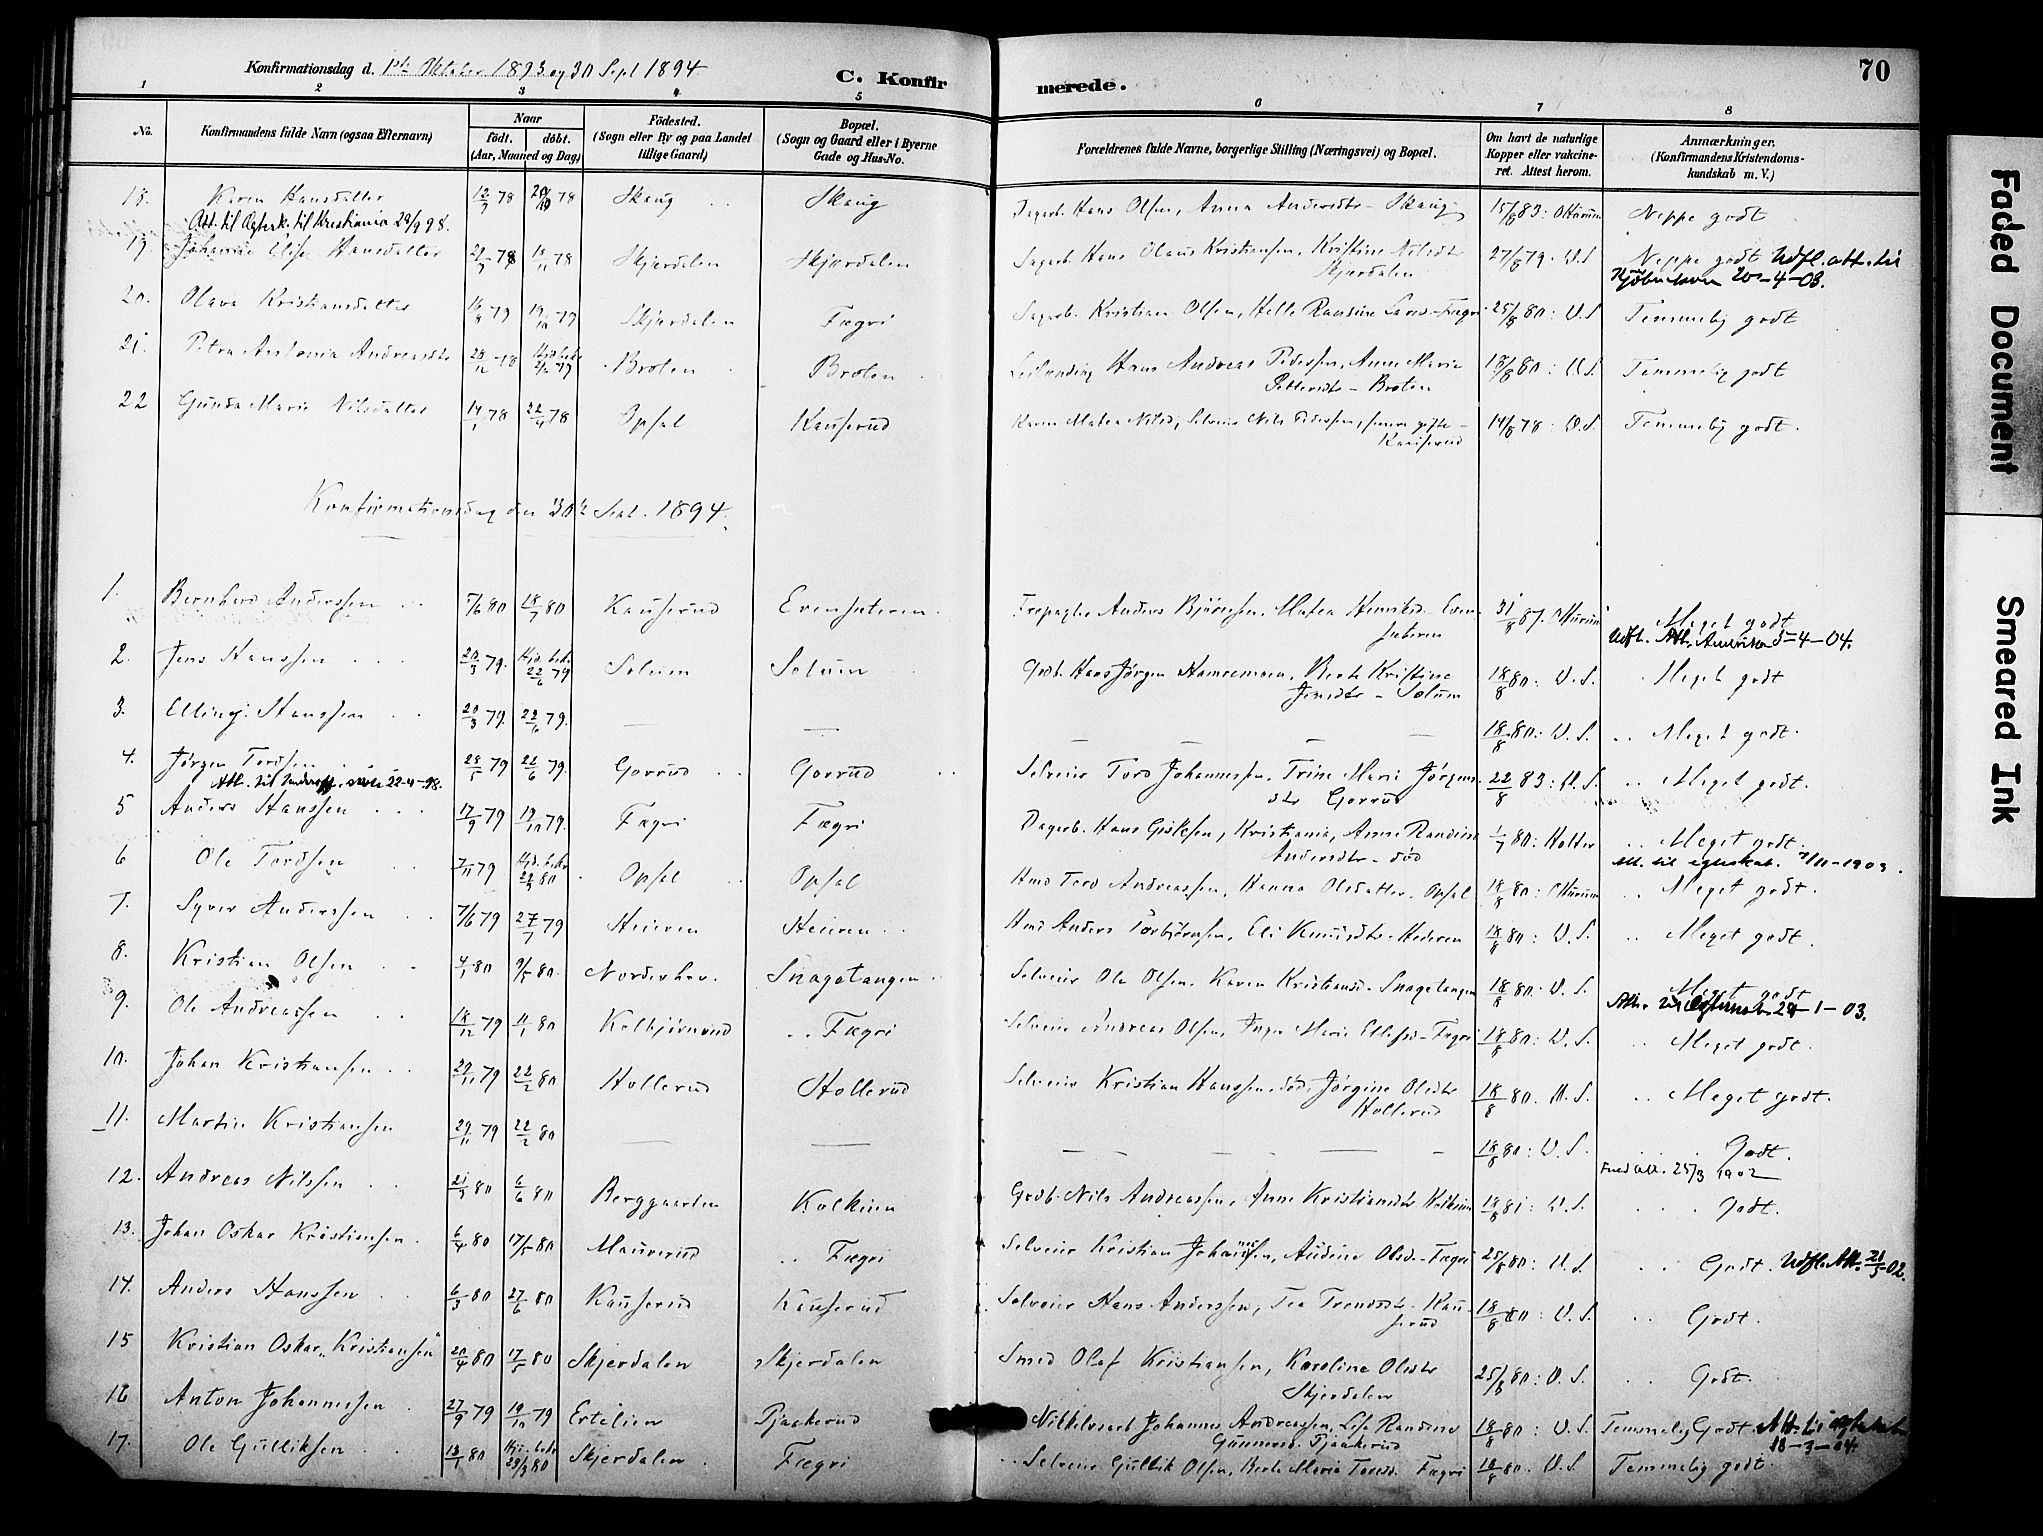 Konfirmationsdag d. 1ste Oktober 1893 og 30 Sept 1894
C. Konfirmerede.
70
1 2 3 4 5 6 7 8
No.
Konfirmandens fulde Navn (ogsaa Efternavn)
Naar
födt. döbt.
(Aar, Maaned og Dag)
Födested.
(Sogn eller By og paa Landet
tillige Gaard)
Bopæl.
(Sogn og Gaard eller i Byerne
Gade og Hus-No.
Forældrenes fulde Navne, borgerlige Stilling (Næringsvei) og Bopæl.
Om havt de naturlige
Kopper eller vakcine-
ret. Attest herom.
Anmærkninger.
(Konfirmandens Kristendoms-
kundskab m. V.)
18. Karen Hansdatter 12/7 78 78 Skaug Skaug Dagarb. Hans Olsen, Anna Andersdtr Skaug 15/8 83: Neppe godt
Att. til Ægtesk. til Kristiania 28/9 98.
19. Johanne Elise Hansdatter 78 78 Skjærdalen Skjærdalen Sagarb. Hans Olaus Kristiansen, Kristine Nilsdtr Skjerdalen 27/8 79. V.S Neppe godt Udfl. att. til
Kjøbenhavn 20-4-03.
20. Olava Kristiansdatter 16/8 79 19/10 79 Skjerdalen Fægri Sagarb. Kristian Olsen, Helle Ransine Larsd. Fægri 25/8 80: V.S Temmelig godt
21. Petra Antonia Andreasdtr 28/12 78 Hjd. bekr. 79 Broten Broten Leilending Hans Andreas Pedersen, Anne Marie Pettersdtr - Broten 18/8 80: V.S. Temmelig godt
22 Gunda Marie Nilsdatter 14/1 78 22/4 78 Opsal Kauserud Karen Matea Nilsd, Selveier Nils Pedersen, gifte - Kauserud 14/8 78: V.S. Temmelig godt.
Konfirmationsdag den 30te Sept. 1894.
1. Bernhard Anderssen 7/6 80 18/7 80 Kauserud Evensæteren Forpagter Anders Bjøressen, Matea Henriksd - Evensæteren 31/8 87. Meget godt
Udfl. Att. Amerika 5-4-04.
2. Jens Hanssen 20/3 79. Hjd. bekr. 22/6 79 Solum Solum Grdb. Hans Jørgen Hansen, Berte Kristine Jensdtr - Solum 18/8 80: V.S. Meget godt
3. Elling Hanssen 20/3 79. 22/6 79. — — — — — — 18/8 80: V.S. Meget godt.
4. Jørgen Tordsen 28/5 79 22/6 79. Gorrud Gorrud Selveier Tord Johannessen, Trine Marie Jørgensdtr Gorrud 22/8 83: V.S. Meget godt.
Att. til 22-4-98.
5 Anders Hanssen 17/9 79 19/10 79. Fægri Fægri Dagarb. Hans Giksen, Kristiania, Anne Randine Andersdtr - død 1/7 80: Holter Meget godt.
Att. til egteskab. 7/11-1903.
6 Ole Tordsen 7/11 79 Hjd. bekr. 80 Opsal Opsal Hmd Tord Andreassen, Hanna Olsdatter. Opsal 18/8 80: Meget godt.
7. Syver Anderssen 7/6 79 27/7 79 Heieren Heieren Hmd Anders Torbjørnsen, Eli Knudsdtr - Heieren 18/8 80: V.S. Meget godt.
8. Kristian Olsen 4/1 80 9/5 80. Norderhov. Snagatangen Selveier Ole Olsen. Karen Kristiansd. Snagatangen 18/8 80. V.S. Meget godt
Att. til Ægtesk. 29-1-03.
9. Ole Andreassen 18/12 79 11/1 80 Kolbjørnrud Fægri Selveier Andreas Olsen, Inger Marie Ellefsd - Fægri 18/8 80: V.S. Meget godt.
10. Johan Kristiansen 29/11 79 22/2 80 Hollerud Hollerud Selveier Kristian Hanssen, død, Jørgine Olsdtr Hollerud 18/8 80. V.S. Meget godt.
11. Martin Kristiansen 29/11 79 22/2 80 — — — — — — — 18/8 80: V.S. Godt.
Flytteatt. 25/3 1902
12. Andreas Nilsen 21/3 80 6/6 80 Berggaarden Kolkinn Grdb. Nils Andreassen, Anne Kristiansdtr Kolkinn 18/8 81: V.S. Godt.
13. Johan Oskar Kristiansen. 6/4 80 17/5 80 Maurerud Fægri Selveier Kristian Johannessen, Audine Olsd - Fægri 25/8 80: V.S. Godt. Udfl. Att. 21/3-02.
14. Anders Hanssen 6/3 80 27/6 80 Kauserud Kauserud Selveier Hans Anderssen, Tea Trondsdtr. Kauserud 18/8 80: V.S. Godt.
15 Kristian Oskar Kristiansen 20/4 80 17/5 80 Skjerdalen Skjerdalen Smed Olaf Kristiansen, Karoline Olsdtr Skjerdalen 25/8 80: V.S. Godt.
16 Anton Johannessen 27/9 79 19/10 79 Ertelien Tjaakerud Nikkelverksarb Johannes Andreassen, Lise Randine Gunnersd. Tjaakerud 18/8 80: V.S. Temmelig Godt. Att. til ægteskab
18-3-04.
17. Ole Gulliksen 18/1 80 Hj. bekr. 29/3 80 Skjerdalen Fægri Selveier Gullik Olsen, Berte Marie Toresd. Fægri 18/8 80. V.S. Temmelig godt.
Faded Document
Smeared Ink